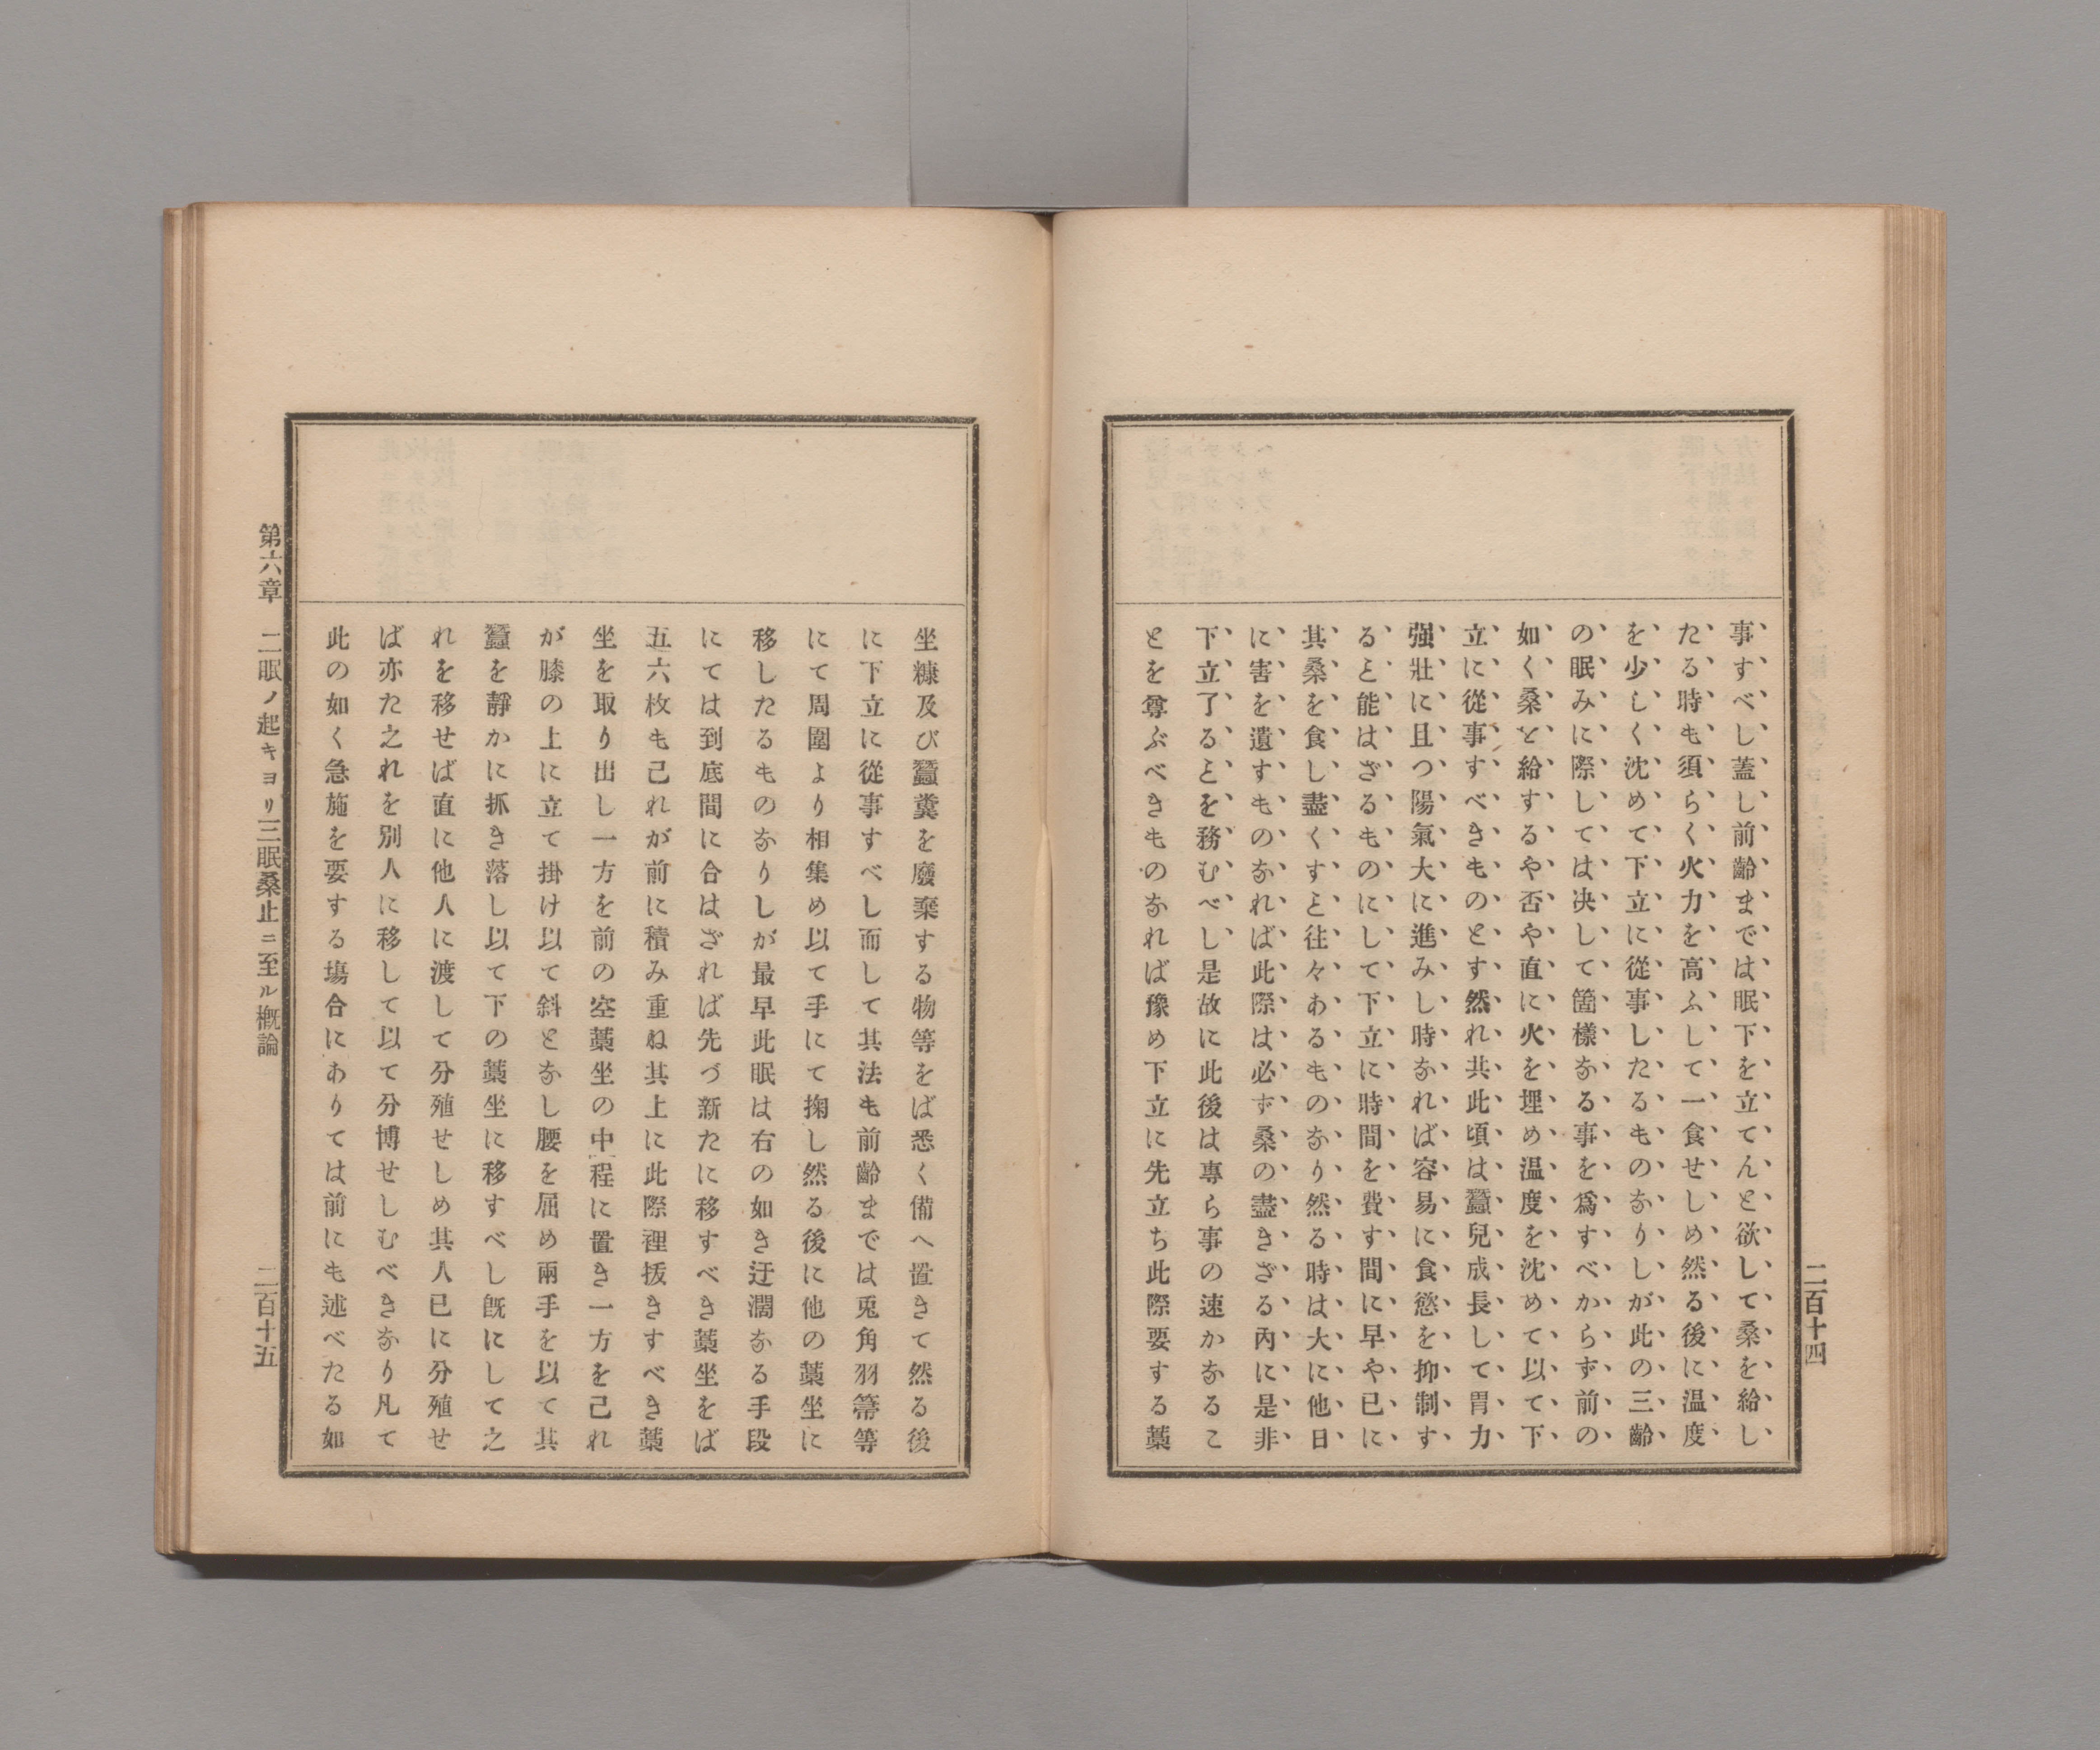 二百十四
事すべし蓋し前齡までは眠下を立てんと欲して桑を給し
たる時も須らく火力を高ふして一食せしめ然る後に温度
を少しく沈めて下立に從事したるものなりしが此の三齡
の眠みに際しては决して箇樣なる事を爲すべからず前の
如く桑と給するや否や直に火を埋め温度を沈めて以て下
立に從事すべきものとす然れ共此頃は蠶兒成長して胃力
强壯に且つ陽氣大に進みし時なれば容易に食慾を抑制す
ると能はざるものにして下立に時間を費す間に早や已に
其桑を食し盡くすと往々あるものなり然る時は大に他日
に害を遺すものなれば此際は必ず桑の盡きざる內に是非
下立了るとを務むべし是故に此後は專ら事の速かなるこ
とを尊ぶべきものなれば豫め下立に先立ち此際要する藁
坐糠及び蠶糞を廢棄する物等をば悉く備へ置きて然る後
に下立に從事すべし而して其法も前齡までは兎角羽箒等
にて周圍より相集め以て手にて掬し然る後に他の藁坐に
移したるものなりしが最早此眠は右の如き迂濶なる手段
にては到底間に合はざれば先づ新たに移すべき藁坐をば
五六枚も己れが前に積み重ね其上に此際裡拔きすべき藁
坐を取り出し一方を前の空藁坐の中程に置き一方を己れ
が膝の上に立て掛け以て斜となし腰を屈め兩手を以て其
蠶を靜かに抓き落し以て下の藁坐に移すべし旣にして之
れを移せば直に他人に渡して分殖せしめ其人已に分殖せ
ば亦た之れを別人に移して以て分博せしむべきなり凡て
此の如く急施を要する塲合にありては前にも述べたる如
第六章 二眠ノ起キヨリ三眠桑止ニ至ル槪論
二百十五